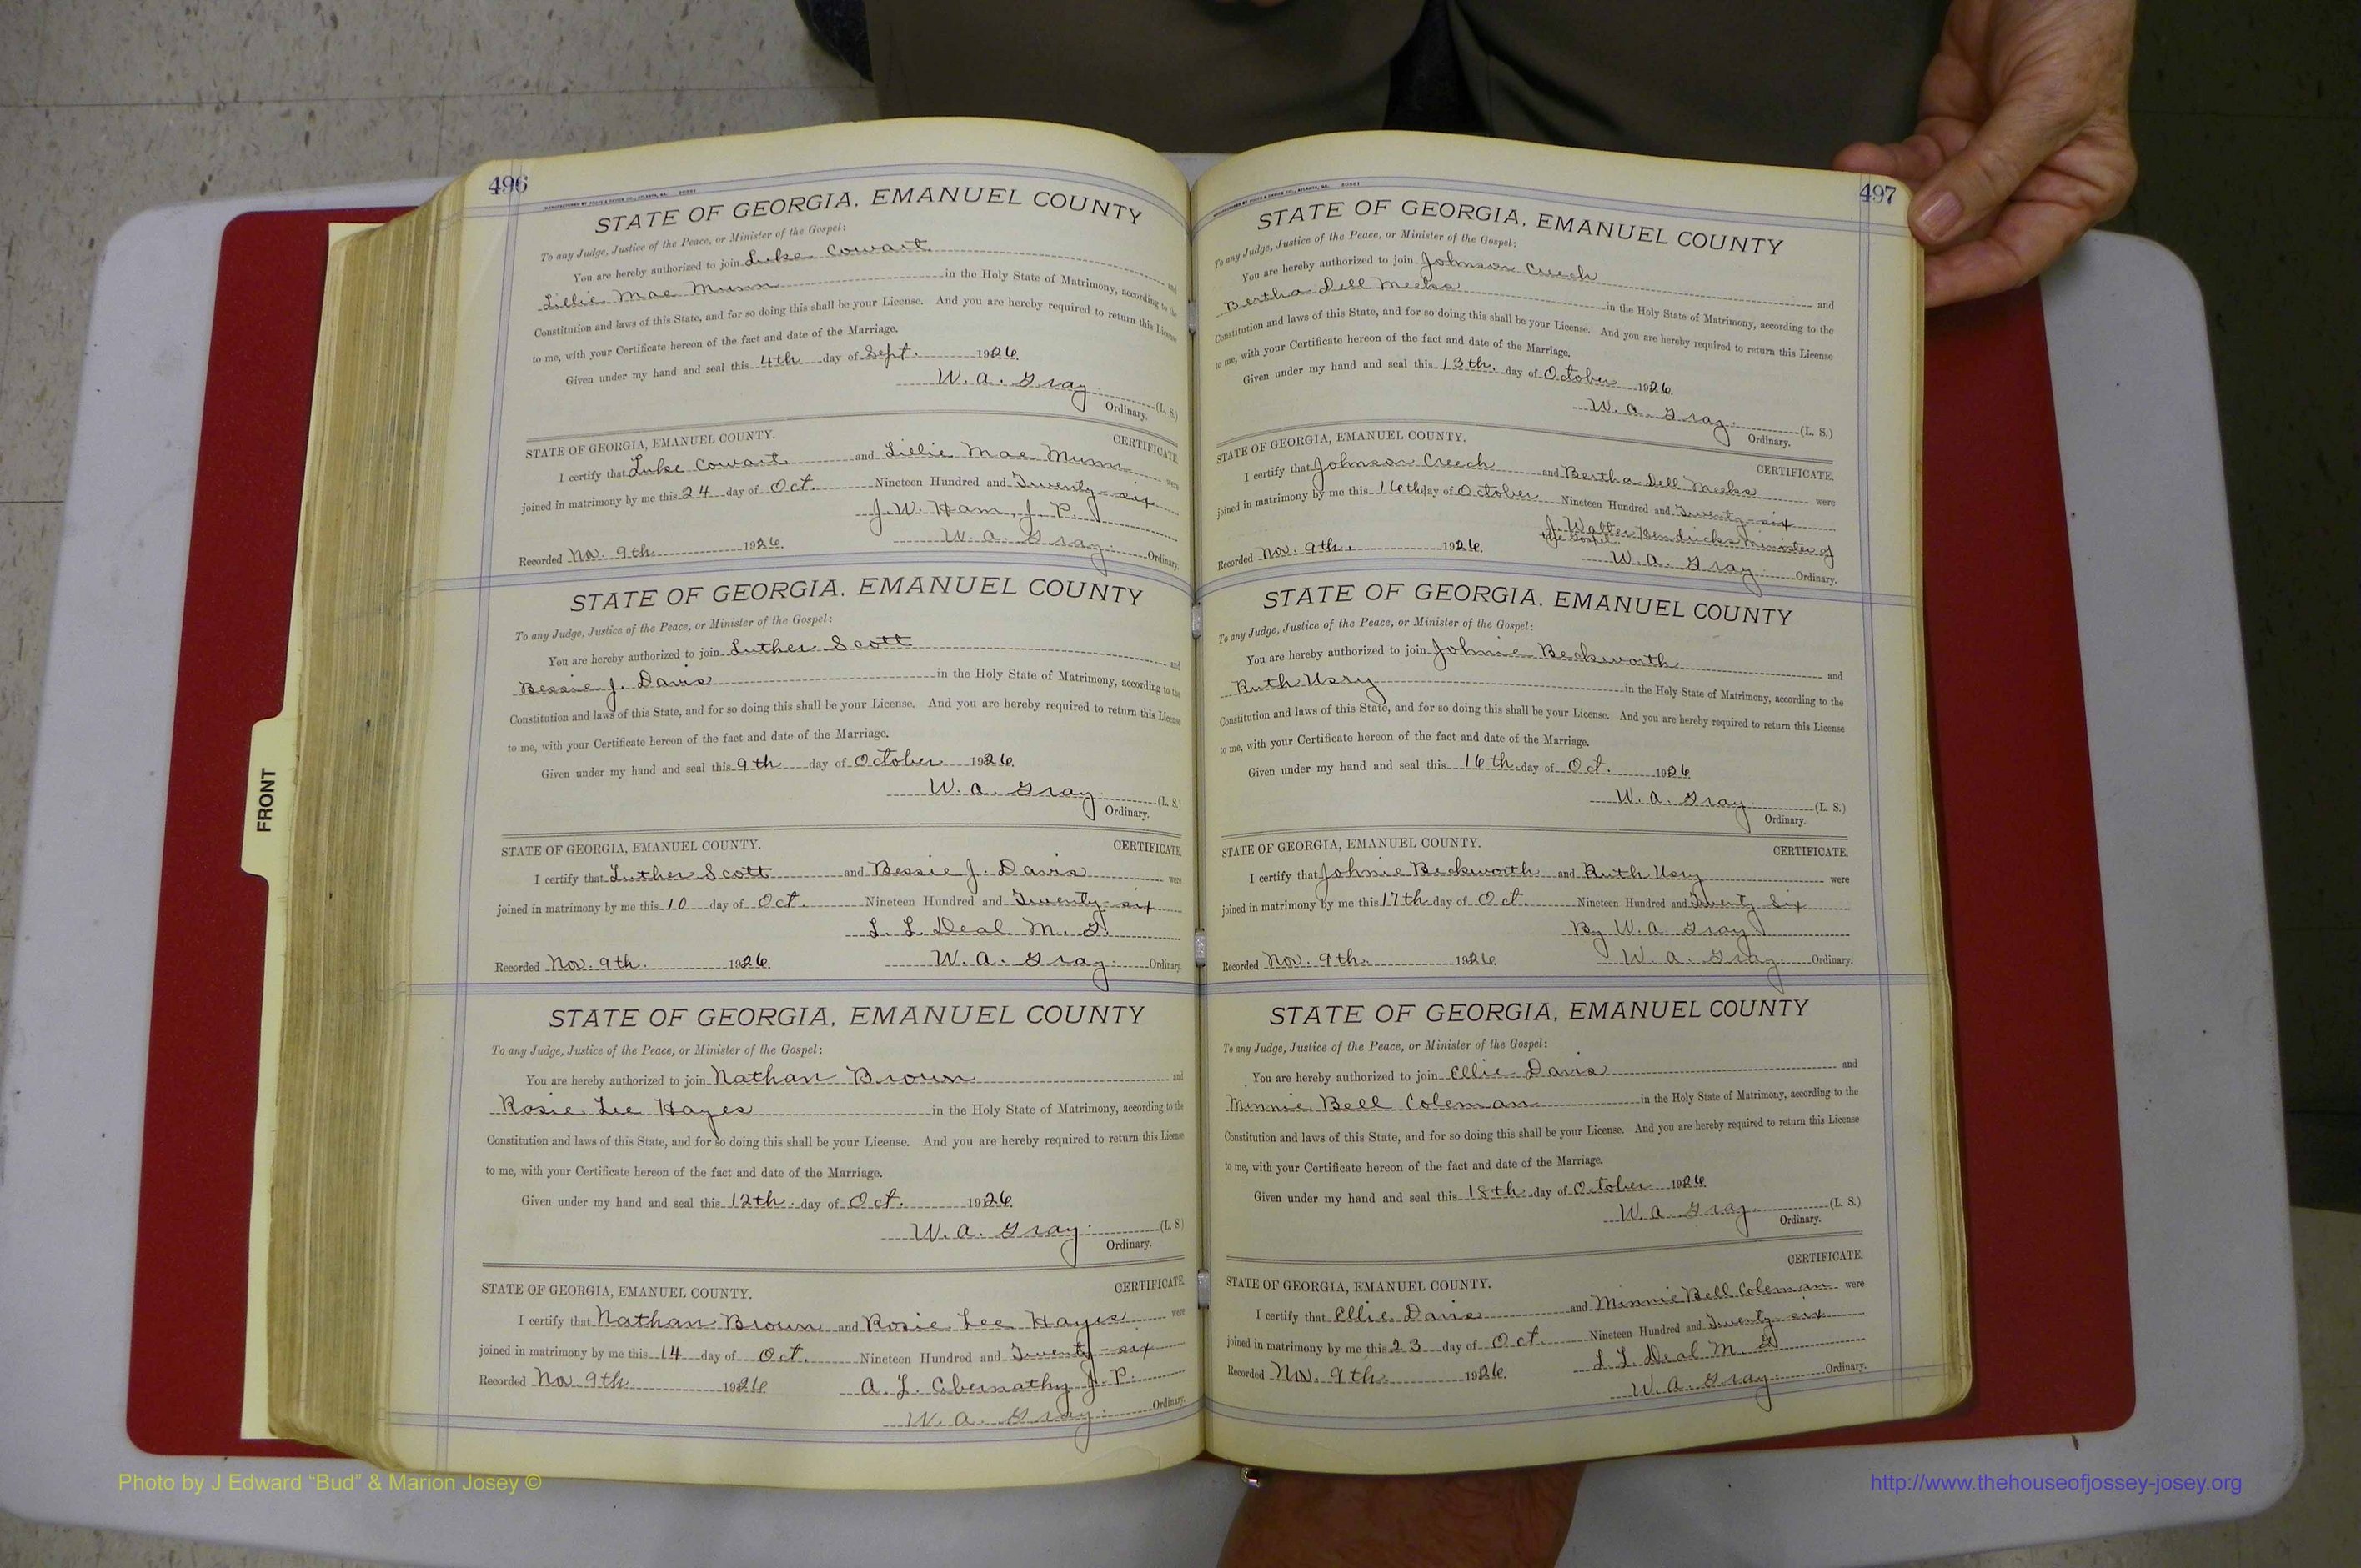 496
STATE OF GEORGIA, EMANUEL COUNTY
To any Judge, Justice of the Peace, or Minister of the Gospel:
You are hereby authorized to join Luke Cowart and
Lillie Mae Munn in the Holy State of Matrimony, according to the
Constitution and laws of this State, and for so doing this shall be your License. And you are hereby required to return this License
to me, with your Certificate hereon of the fact and date of the Marriage.
Given under my hand and seal this 4th day of Sept. 1926.
W. A. Gray (L. S.)
Ordinary.
STATE OF GEORGIA, EMANUEL COUNTY. CERTIFICATE
I certify that Luke Cowart and Lillie Mae Munn were
joined in matrimony by me this 24 day of Oct. Nineteen Hundred and Twenty-six
J. W. Ham, J. P.
Recorded Nov. 9th 1926. W. A. Gray. Ordinary.
STATE OF GEORGIA, EMANUEL COUNTY
To any Judge, Justice of the Peace, or Minister of the Gospel:
You are hereby authorized to join Luther Scott and
Bessie J. Davis in the Holy State of Matrimony, according to the
Constitution and laws of this State, and for so doing this shall be your License. And you are hereby required to return this License
to me, with your Certificate hereon of the fact and date of the Marriage.
Given under my hand and seal this 9th day of October 1926.
W. A. Gray (L. S.)
Ordinary.
STATE OF GEORGIA, EMANUEL COUNTY. CERTIFICATE
I certify that Luther Scott and Bessie J. Davis were
joined in matrimony by me this 10 day of Oct. Nineteen Hundred and Twenty-six
L. L. Deal M. G.
Recorded Nov. 9th. 1926. W. A. Gray. Ordinary.
STATE OF GEORGIA, EMANUEL COUNTY
To any Judge, Justice of the Peace, or Minister of the Gospel:
You are hereby authorized to join Nathan Brown and
Rosie Lee Hayes in the Holy State of Matrimony, according to the
Constitution and laws of this State, and for so doing this shall be your License. And you are hereby required to return this License
to me, with your Certificate hereon of the fact and date of the Marriage.
Given under my hand and seal this 12th. day of Oct. 1926.
W. A. Gray. (L. S.)
Ordinary.
STATE OF GEORGIA, EMANUEL COUNTY. CERTIFICATE
I certify that Nathan Brown and Rosie Lee Hayes were
joined in matrimony by me this 14 day of Oct. Nineteen Hundred and Twenty-six
Recorded Nov. 9th. 1926 A. L. Abernathy J. P.
W. A. Gray. Ordinary.
497
STATE OF GEORGIA, EMANUEL COUNTY
To any Judge, Justice of the Peace, or Minister of the Gospel:
You are hereby authorized to join Johnson Creech and
Bertha Dell Meeks in the Holy State of Matrimony, according to the
Constitution and laws of this State, and for so doing this shall be your License. And you are hereby required to return this License
to me, with your Certificate hereon of the fact and date of the Marriage.
Given under my hand and seal this 13th. day of October 1926.
W. A. Gray. (L. S.)
Ordinary.
STATE OF GEORGIA, EMANUEL COUNTY. CERTIFICATE.
I certify that Johnson Creech and Bertha Dell Meeks were
joined in matrimony by me this 16th day of October Nineteen Hundred and Twenty-six
J. Walter Hendricks Minister of
the Gospel.
Recorded Nov. 9th. 1926. W. A. Gray. Ordinary.
STATE OF GEORGIA, EMANUEL COUNTY
To any Judge, Justice of the Peace, or Minister of the Gospel:
You are hereby authorized to join Johnie Beckworth and
Ruth Usry in the Holy State of Matrimony, according to the
Constitution and laws of this State, and for so doing this shall be your License. And you are hereby required to return this License
to me, with your Certificate hereon of the fact and date of the Marriage.
Given under my hand and seal this 16th day of Oct. 1926
W. A. Gray (L. S.)
Ordinary.
STATE OF GEORGIA, EMANUEL COUNTY. CERTIFICATE.
I certify that Johnie Beckworth and Ruth Usry were
joined in matrimony by me this 17th day of Oct. Nineteen Hundred and Twenty Six
By W. A Gray
Recorded Nov. 9th. 1926 W. A. Gray. Ordinary.
STATE OF GEORGIA, EMANUEL COUNTY
To any Judge, Justice of the Peace, or Minister of the Gospel:
You are hereby authorized to join Ellie Davis and
Minnie Bell Coleman in the Holy State of Matrimony, according to the
Constitution and laws of this State, and for so doing this shall be your License. And you are hereby required to return this License
to me, with your Certificate hereon of the fact and date of the Marriage.
Given under my hand and seal this 18th day of October 1926
W. A. Gray (L. S.)
Ordinary.
CERTIFICATE.
STATE OF GEORGIA, EMANUEL COUNTY.
I certify that Ellie Davis and Minnie Bell Coleman were
joined in matrimony by me this 23 day of Oct. Nineteen Hundred and Twenty six
L L Deal M. G
Recorded Nov. 9th. 1926. W. A. Gray. Ordinary.
FRONT
Photo by J Edward “Bud” & Marion Josey ©
http://www.thehouseofjossey-josey.org